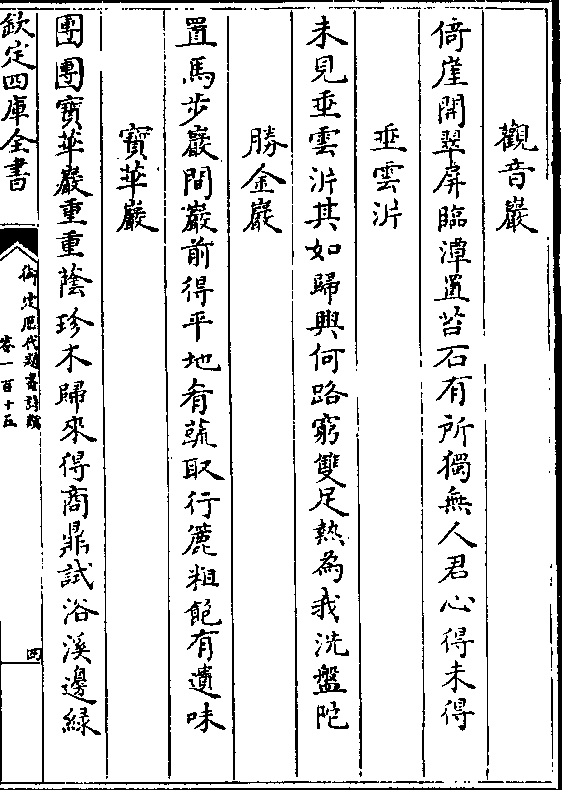 觀音巖
倚崖開翠屏臨潭置苔石有所獨無人君心得未得
垂雲沜
未見垂雲沜其如歸興何路窮雙足熱為我洗盤陀
勝金巖
置馬步巖間巖前得平地肴蔬取行簏粗飽有遺味
寳華巖
團團寳華巖重重蔭珍木歸來得商鼎試浴溪邊綠
欽定四庫全書
御定歷代題畫詩類
卷一百十五
四